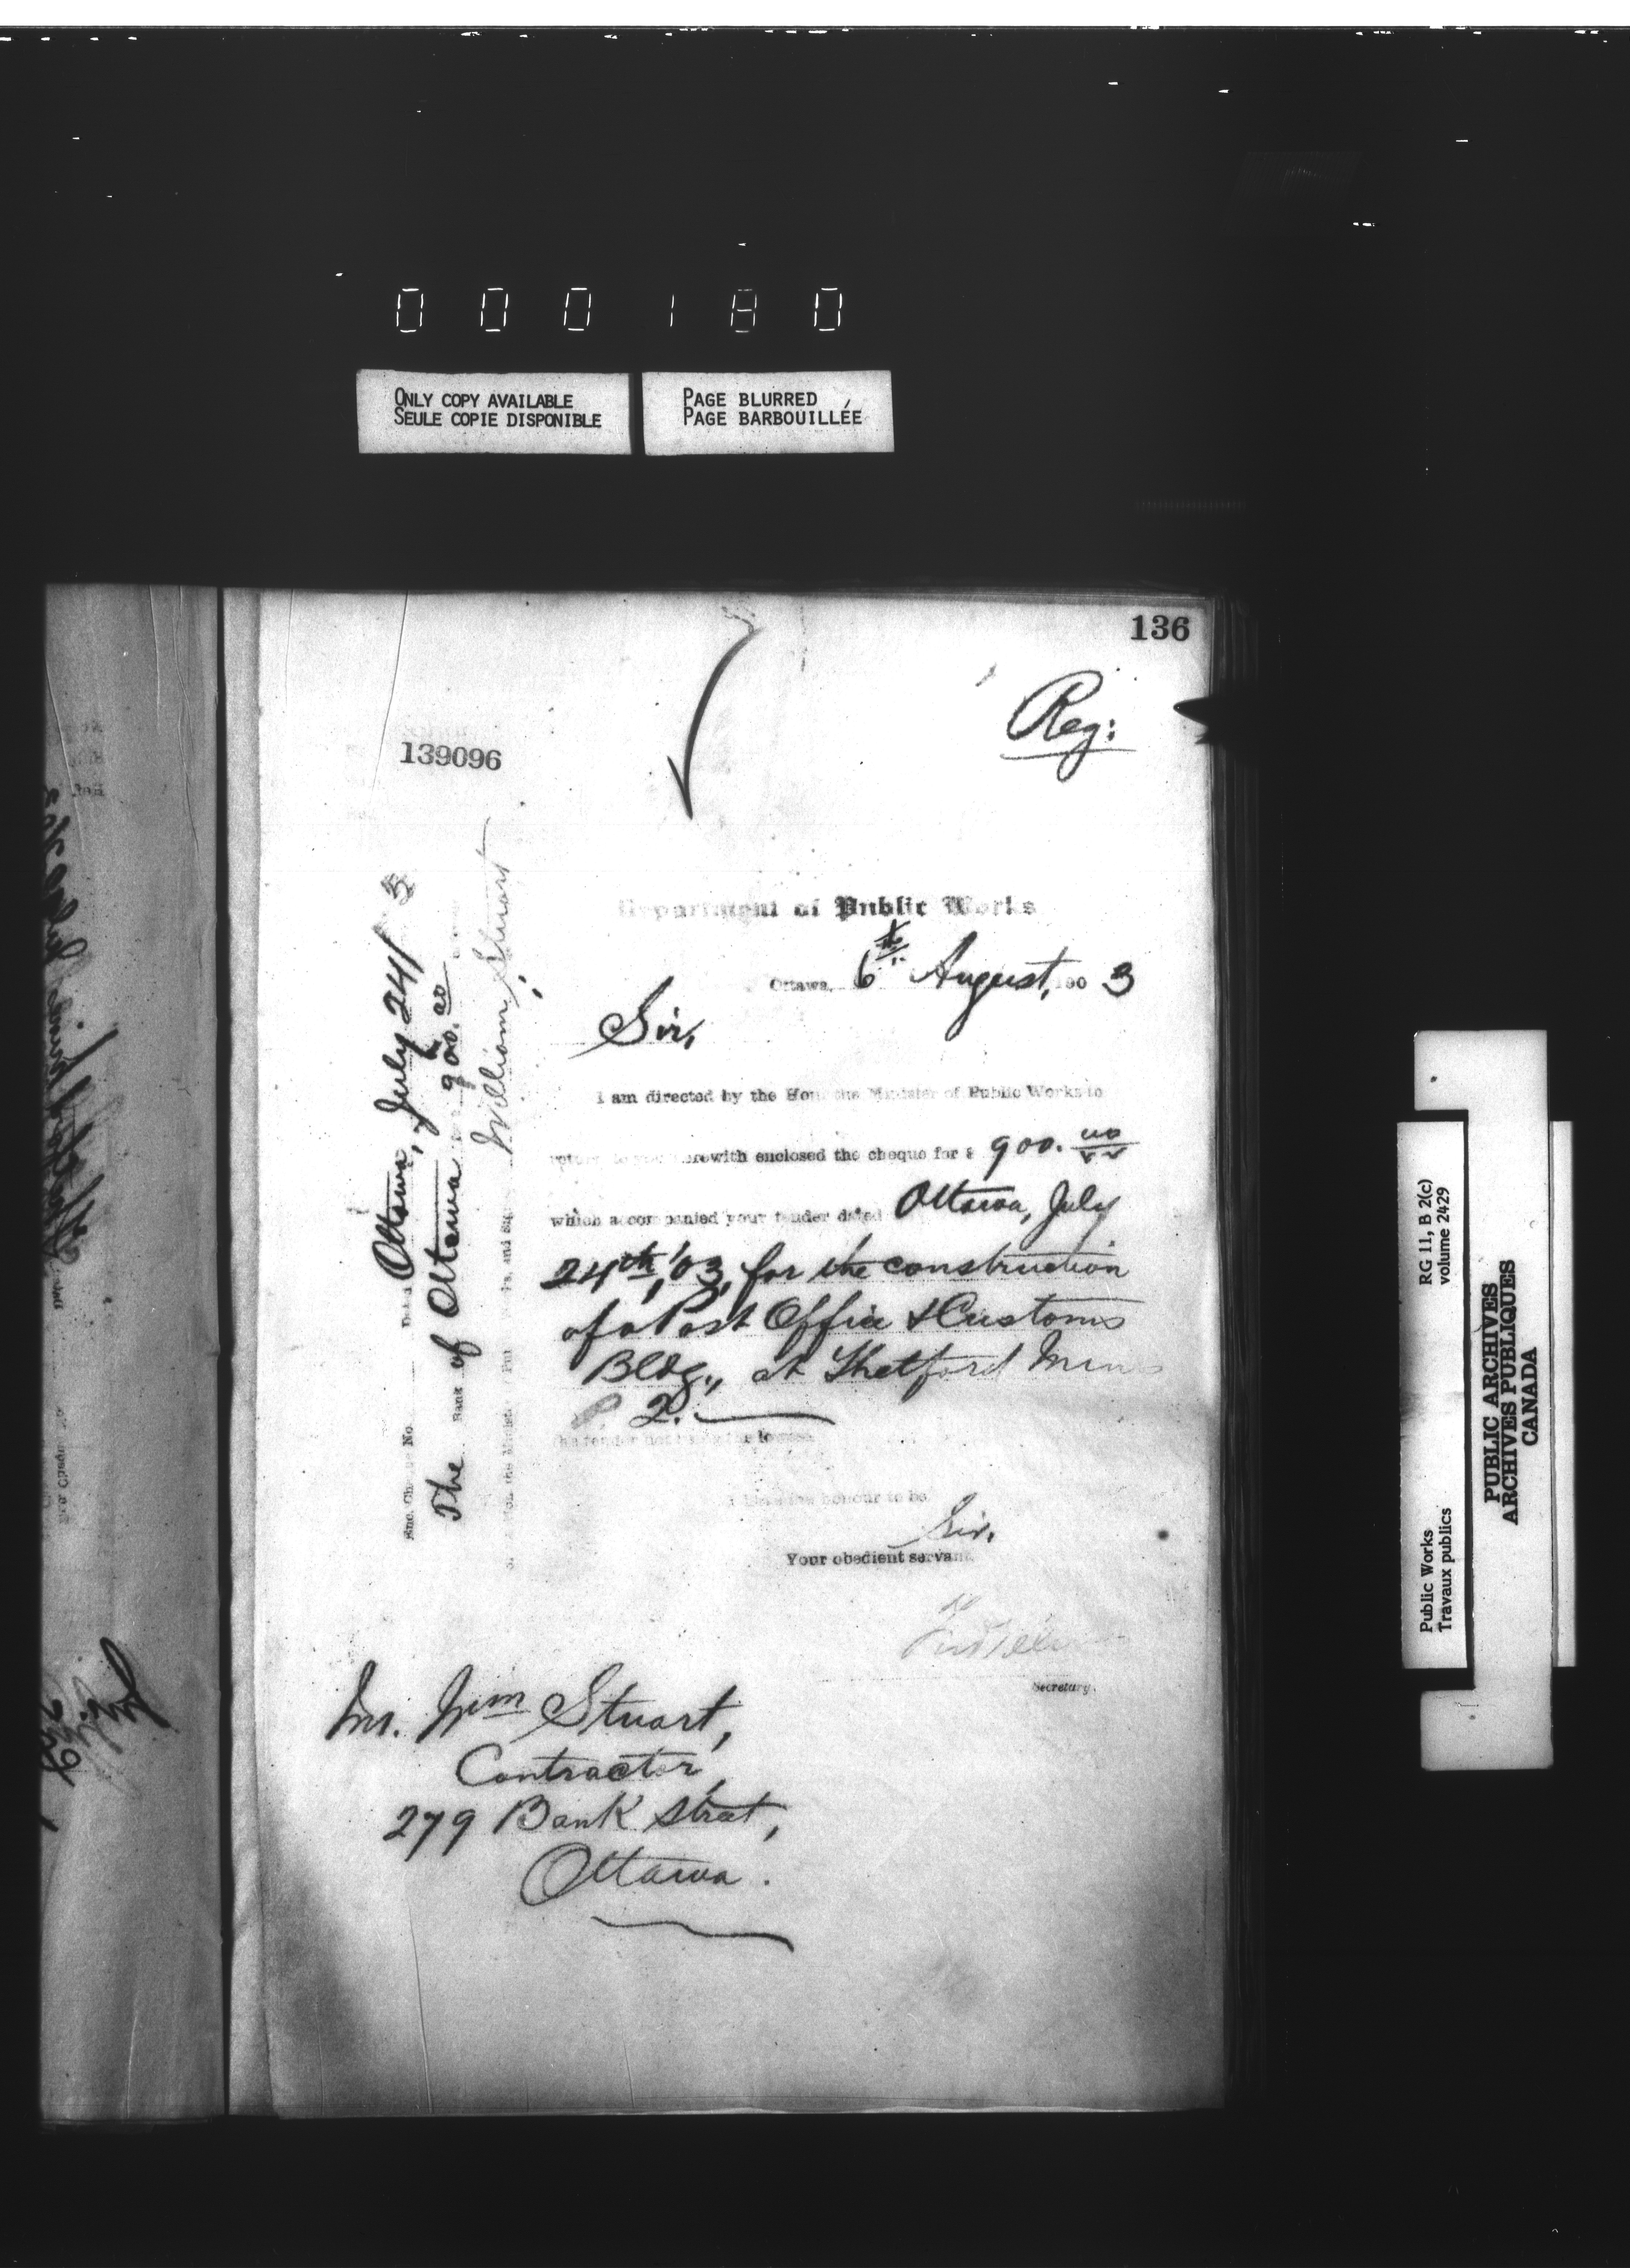 000180
ONLY COPY AVAILABLE
SEULE COPIE DISPONIBLE
PAGE BLURRED
PAGE BARBOUILLÉE
136
Reg:
139096
Department of Public Works
Ottawa, 6th August, 1903
Sir,
I am directed by the Hon. the Minister of Public Works to
return to you herewith enclosed the cheque for $ 900.00
which accompanied your tender dated Ottawa, July
24th, '03, for the construction
of a Post Office & Customs
Bldg., at Thetford Mines
P. Q.
the tender not being the lowest
I have the honour to be
Sir,
Your obedient servant
Secretary.
Mr. Wm Stuart,
Contractor,
279 Bank Street,
Ottawa.
Enc. Cheque No. Dated Ottawa, July 24/ 3
The Bank of Ottawa for $ 900.00
William Stuart
Public Works
Travaux publics
RG 11, B 2(c)
volume 2429
PUBLIC ARCHIVES
ARCHIVES PUBLIQUES
CANADA